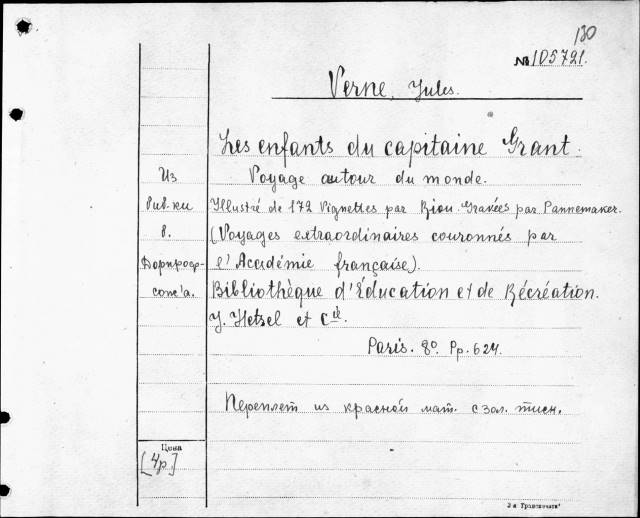 130
№ 105721.
Verne, Jules.
Les enfants du capitaine Grant.
Из
Voyage autour du monde.
биб-ки
Illustré de 172 Vignettes par Riou. Gravées par Pannemaker.
в.
(Voyages extraordinaires couronnés par
l'Académie française).
Bibliothèque d'Éducation et de Récréation.
J. Hetsel et Cie.
Paris. 8º. Pp. 624.
Переплет из красной мат. с зол. тисн.
Цена
[4р.]